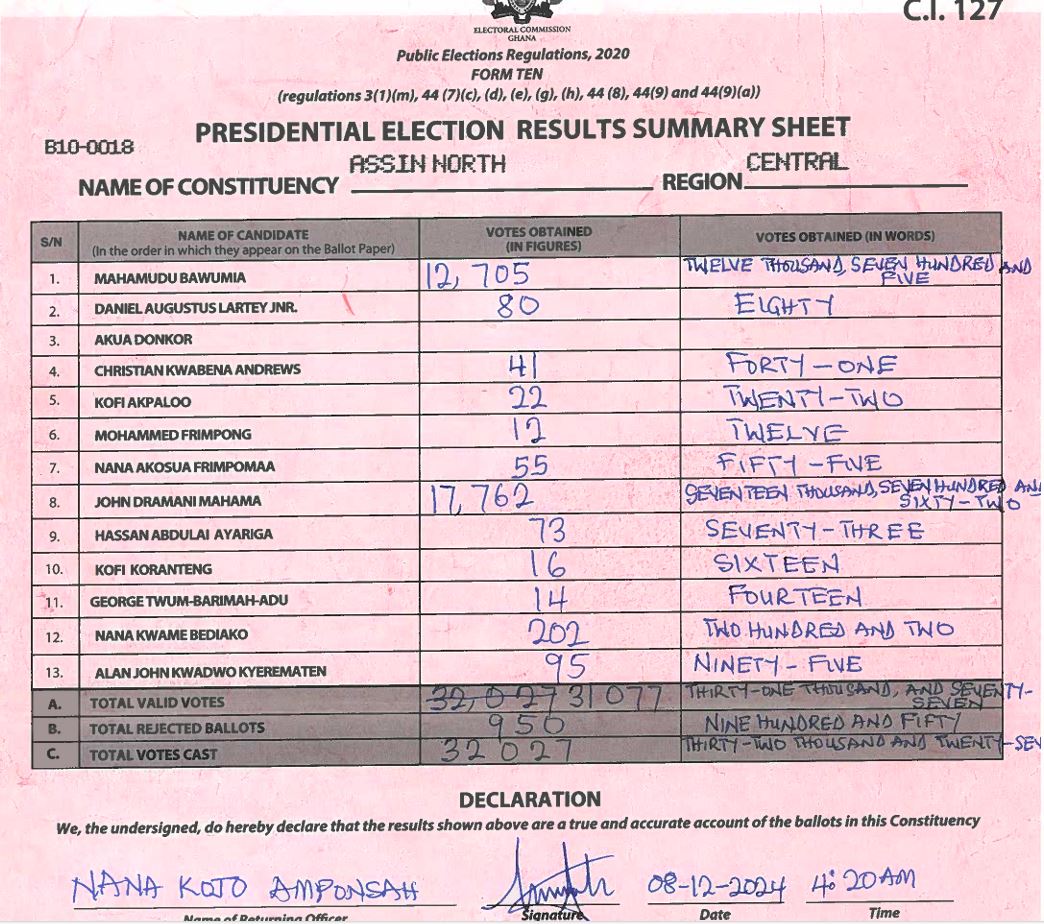 C.I. 127
ELECTORAL COMMISSION
GHANA
Public Elections Regulations, 2020
FORM TEN
(regulations 3(1)(m), 44 (7)(c), (d), (e), (g), (h), 44 (8), 44(9) and 44(9)(a))
PRESIDENTIAL ELECTION RESULTS SUMMARY SHEET
B10-0018
NAME OF CONSTITUENCY ASSIN NORTH REGION CENTRAL
S/N NAME OF CANDIDATE (In the order in which they appear on the Ballot Paper) VOTES OBTAINED (IN FIGURES) VOTES OBTAINED (IN WORDS)
1. MAHAMUDU BAWUMIA 12, 705 TWELVE THOUSAND, SEVEN HUNDRED AND FIVE
2. DANIEL AUGUSTUS LARTEY JNR. 80 EIGHTY
3. AKUA DONKOR
4. CHRISTIAN KWABENA ANDREWS 41 FORTY-ONE
5. KOFI AKPALOO 22 TWENTY-TWO
6. MOHAMMED FRIMPONG 12 TWELVE
7. NANA AKOSUA FRIMPOMAA 55 FIFTY-FIVE
8. JOHN DRAMANI MAHAMA 17, 762 SEVENTEEN THOUSAND, SEVEN HUNDRED AND SIXTY-TWO
9. HASSAN ABDULAI AYARIGA 73 SEVENTY-THREE
10. KOFI KORANTENG 16 SIXTEEN
11. GEORGE TWUM-BARIMAH-ADU 14 FOURTEEN
12. NANA KWAME BEDIAKO 202 TWO HUNDRED AND TWO
13. ALAN JOHN KWADWO KYEREMATEN 95 NINETY-FIVE
A. TOTAL VALID VOTES 32,027 31077 THIRTY-ONE THOUSAND, AND SEVENTY-SEVEN
B. TOTAL REJECTED BALLOTS 950 NINE HUNDRED AND FIFTY
C. TOTAL VOTES CAST 32027 THIRTY-TWO THOUSAND AND TWENTY-SEV
DECLARATION
We, the undersigned, do hereby declare that the results shown above are a true and accurate account of the ballots in this Constituency
NANA KOJO AMPONSAH 08-12-2024 4:20AM
Name of Returning Officer Signature Date Time